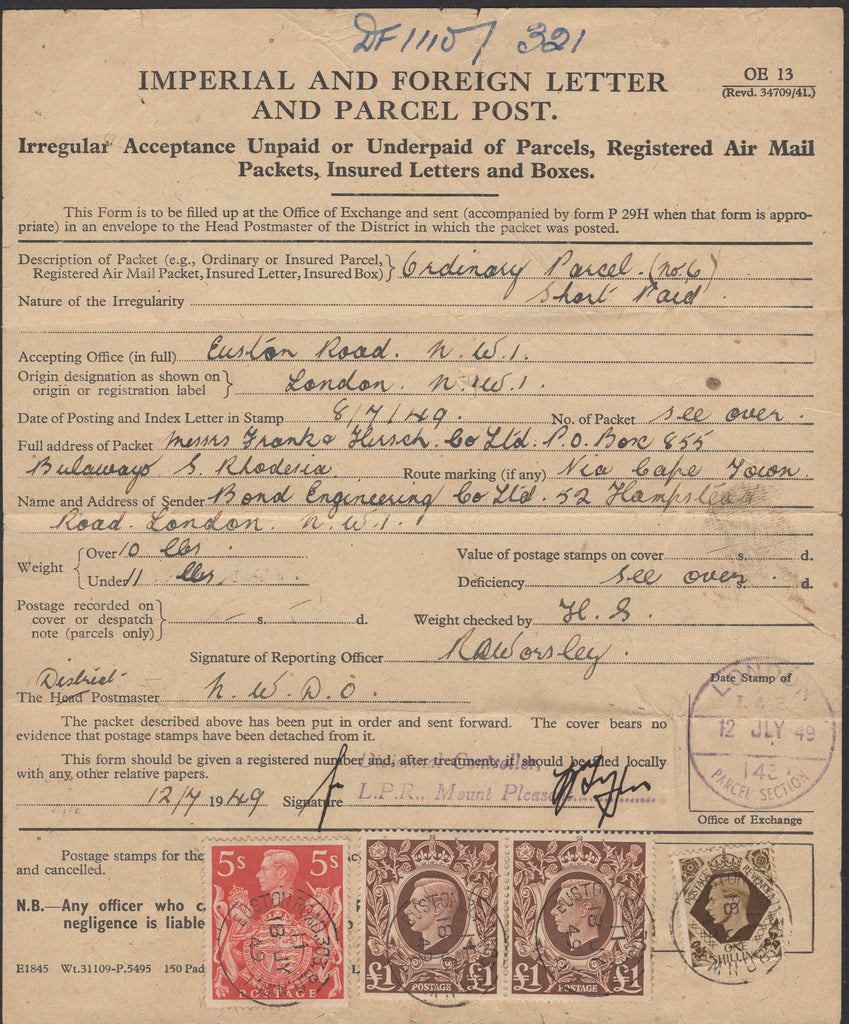 DF 1110/ 321
IMPERIAL AND FOREIGN LETTER
AND PARCEL POST.
OE 13
(Revd. 34709/41.)
Irregular Acceptance Unpaid or Underpaid of Parcels, Registered Air Mail
Packets, Insured Letters and Boxes.
This Form is to be filled up at the Office of Exchange and sent (accompanied by form P 29H when that form is appro-
priate) in an envelope to the Head Postmaster of the District in which the packet was posted.
Description of Packet (e.g., Ordinary or Insured Parcel,
Registered Air Mail Packet, Insured Letter, Insured Box) } Ordinary Parcel. (no. 6)
Nature of the Irregularity Short Paid
Accepting Office (in full) Euston Road. N.W.1.
Origin designation as shown on
origin or registration label } London. N.W.1.
Date of Posting and Index Letter in Stamp 8/7/49. No. of Packet see over.
Full address of Packet Messrs Frank & Hirsch. Co Ltd. P.O. Box 855
Bulawayo S. Rhodesia Route marking (if any) Via Cape Town.
Name and Address of Sender Bond Engineering Co Ltd. 52 Hampstead
Road. London. N.W.1.
Weight { Over 10 lbs.
Under 11 lbs
Value of postage stamps on cover s. d.
Deficiency see over s. d.
Postage recorded on
cover or despatch
note (parcels only) } s. d.
Weight checked by H. S.
Signature of Reporting Officer RAWorsley.
District
The Head Postmaster N.W.D.O.
Date Stamp of
LONDON
12 JLY 49
143
PARCEL SECTION
Office of Exchange
The packet described above has been put in order and sent forward. The cover bears no
evidence that postage stamps have been detached from it.
This form should be given a registered number and, after treatment, it should be filed locally
with any other relative papers.
Divisional Controller,
L.P.R., Mount Pleasant
12/7 1949 Signature
Postage stamps for the
and cancelled.
N.B.—Any officer who
negligence is liable
E1845 Wt.31109-P.5495 150 Pad
5s 5s
POSTAGE
EUSTON ROAD
18 JY
49
£1 POSTAGE £1
EUSTON
18
49
£1 POSTAGE £1
EUSTON
18
49
POSTAGE REVENUE
ONE
SHILLING
EUSTON
18